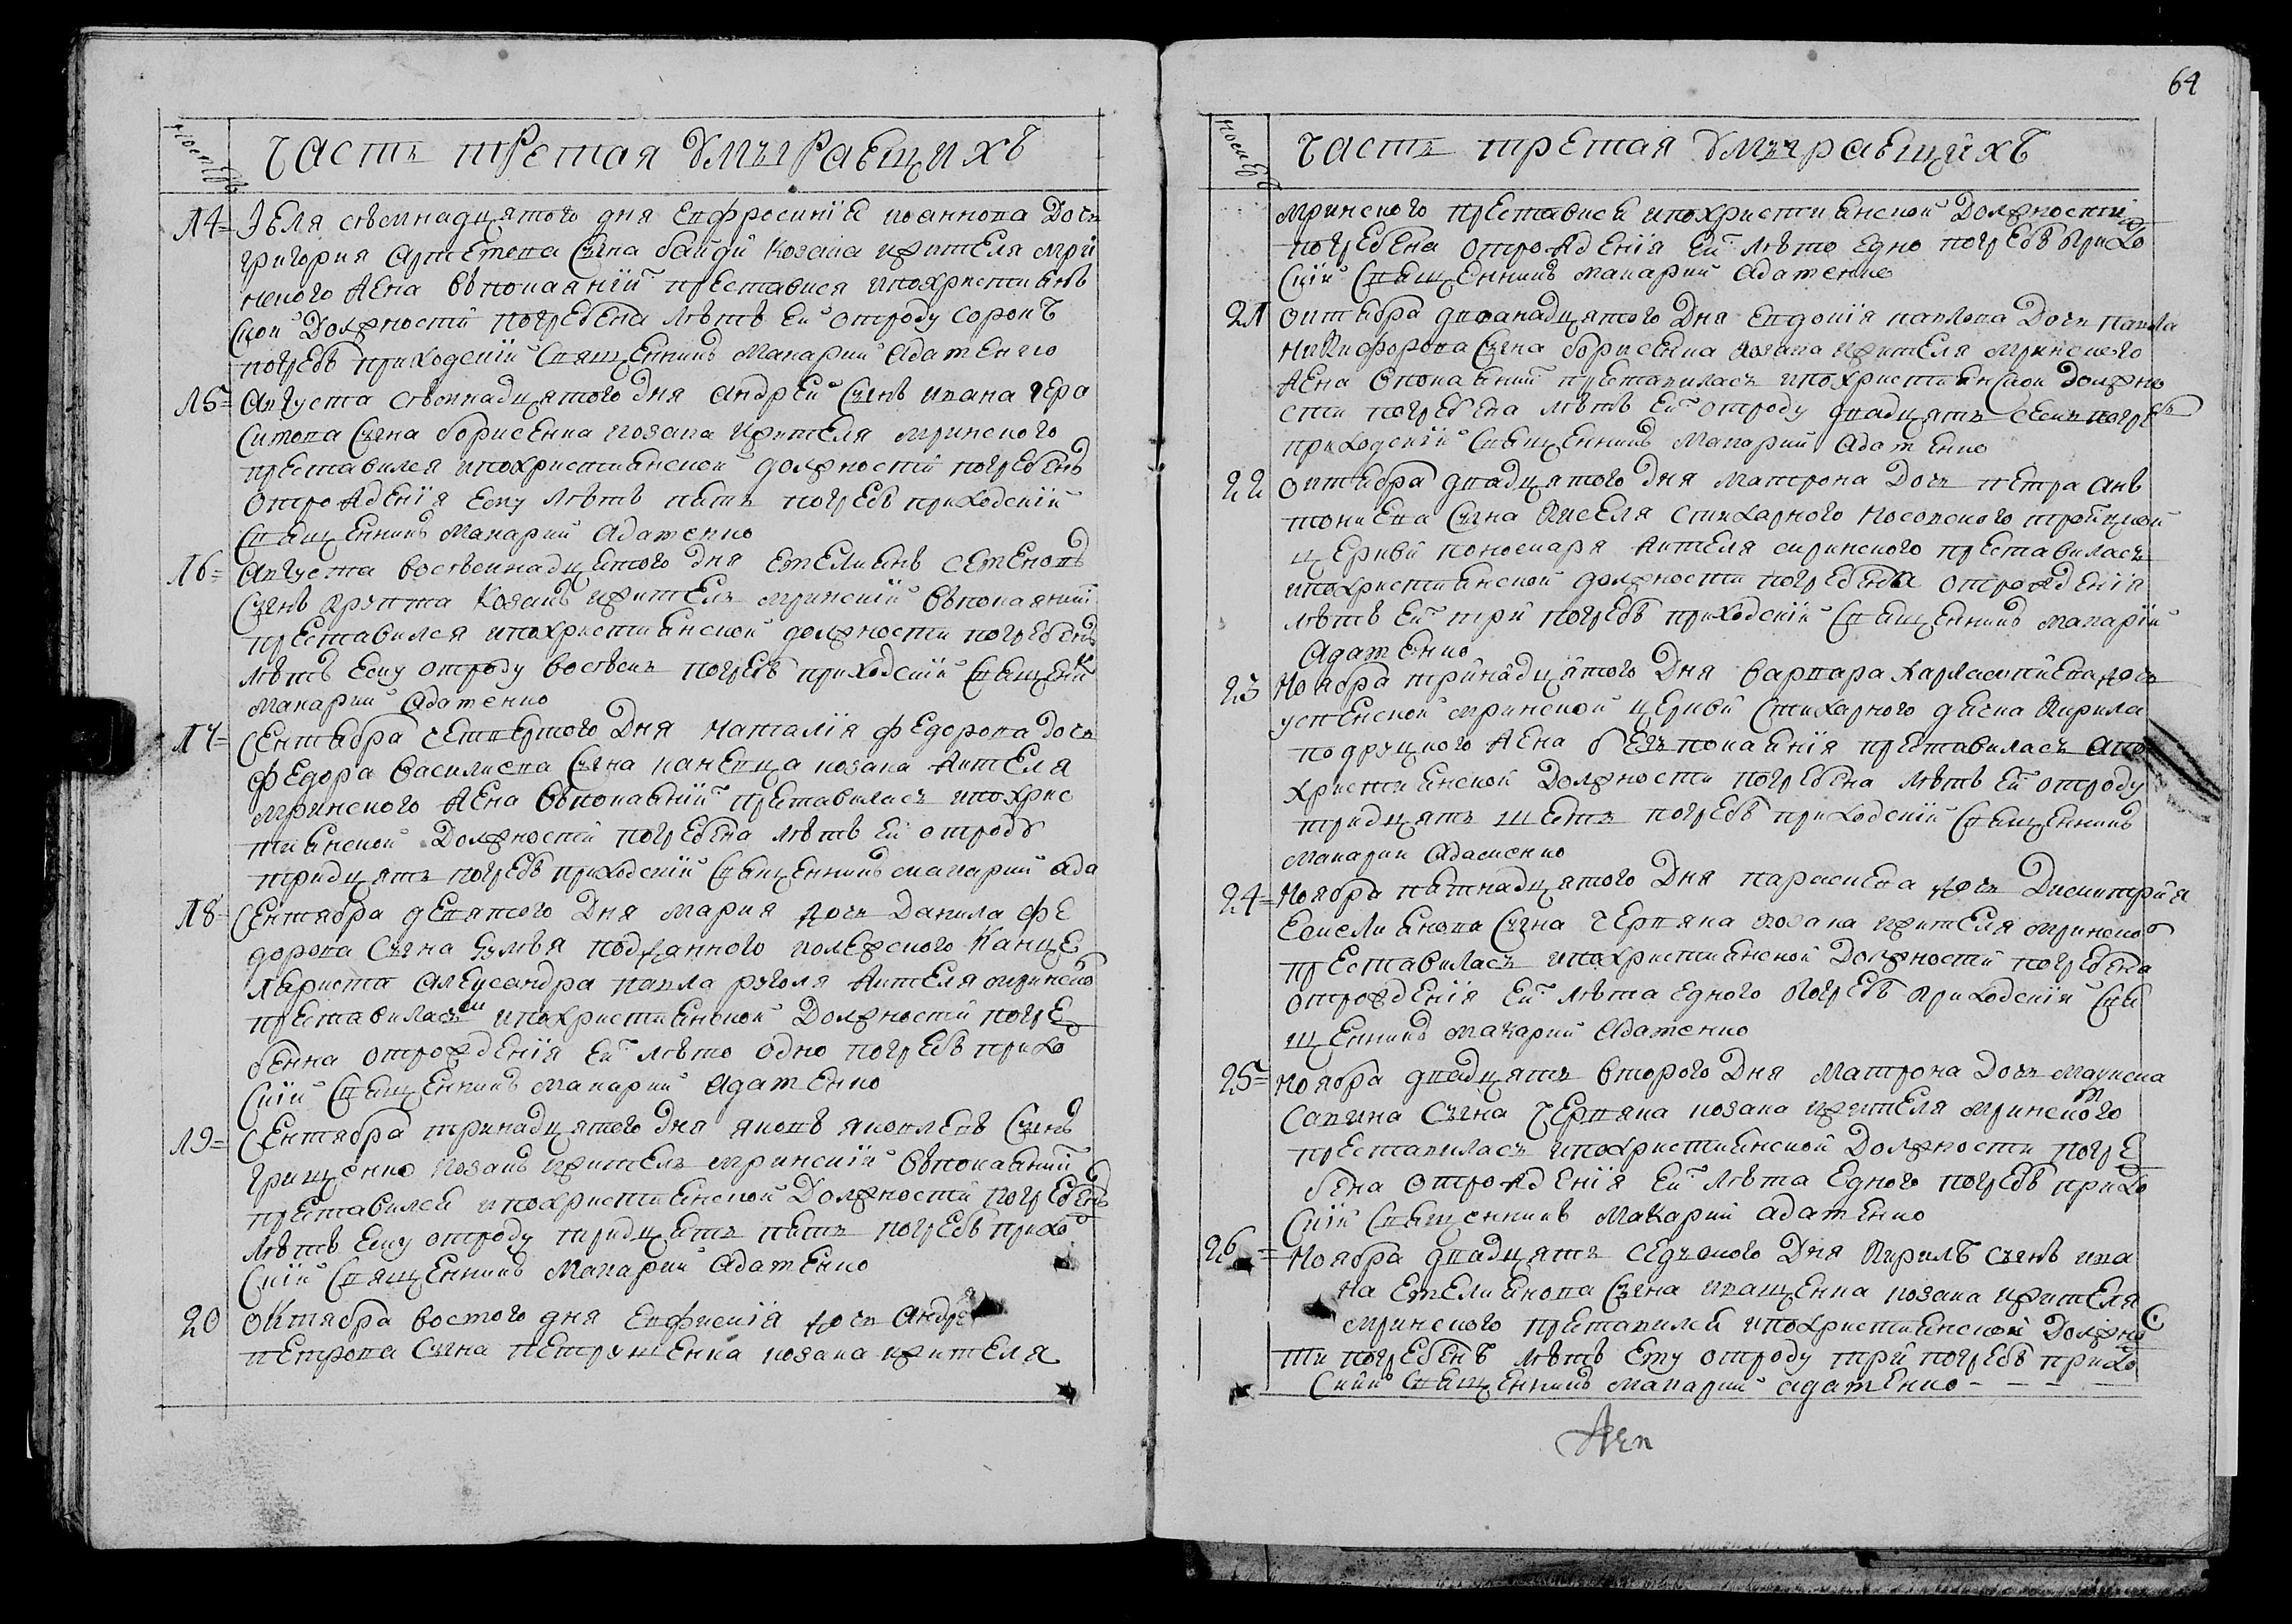 Часть третая умырающихъ
14= Іюля осмнадцятого дня Евфросиния иоаннова дочь
григория Артемова сына байди козака жителя мрин
ского жена въ покаянии преставися и по христиан
ской должности погребена лѣтъ ей отроду сорокъ
погребъ приходский священникъ Макарий Адаменко
15= Августа осмнадцятого дня Андрей сынъ ивана гера
симова сына борисенка козака жителя мринского
преставился и по христианской должности погребенъ
отрождения ему лѣтъ пять погребъ приходский
священникъ Макарий Адаменко
16= Августа восемнадцятого дня Емелианъ Семеновъ
сынъ крупка козакъ житель мринский въ покаянии
преставился и по христианской должности погребенъ
лѣтъ ему отроду восѣмъ погребъ приходский священикъ
Макарий Адаменко
17= Сентября четвертого дня Наталия Федорова дочь
Федора Василиева сына козака жителя
мринского жена въ покаянии преставилась и по хрис
тианской должности погребена лѣтъ ей отроду
тридцять погребъ приходский священникъ макарий ада
18= Сентября девятого дня Мария дочь Данила Фе
дорова сына подданного полкового канце
ляриста Александра павла жителя мринского
преставилась и по христианской должности погре
бенна отрождения ей лѣто одно погребъ прихо
ский священникъ Макарий Адаменко
19= Сентября тринадцятого дня яковъ яковлевъ сынъ
грищенко козакъ житель мринский въ покаянии
преставился и по христианской должности погребенъ
лѣтъ ему отроду тридцять пять погребъ прихо
ский священникъ Макарий Адаменко
20 Октября востого дня Евфимия дочь Андрея
петрова сына петрушенка козака жителя
64
Часть третая умырающихъ
мринского преставися и по христианской должности
погребена отрождения ей лѣто едно погребъ прихо
ский священникъ макарий Адаменко
21 октября дванадцятого дня Евдокия павлова дочь павла
Никифорова сына борисенка козака жителя мринского
жена в покаянии преставилась и по христианской должно
сти погребена лѣтъ ей отроду двадцять семь погребъ
приходский священникъ Макарий Адаменко
22 октября двадцятого дня Матрона дочь петра Ан
тониева сына киселя стихарного носовского тройцкой
церкви пономаря жителя мринского преставилась
и по христианской должности погребена отрождения
лѣтъ ей три погребъ приходский священникъ макарий
Адаменко
23 Ноября тринадцятого дня варвара дочь
успенской мринской церкви стихарного дяка Кирила
жена безъ покаяния преставилась и по
христианской должности погребена лѣтъ ей отроду
тридцять шесть погребъ приходский священникъ
Макарий Адаменко
24= Ноября пятнадцятого дня параскева дочь Димитрия
Емелиянова сына черняка козака жителя мринского
преставилась и по христианской должности погребена
отрождения ей лѣта едного погребъ приходский свя
щенникъ Макарий Адаменко
25= Ноября двадцять второго дня Матрона дочь Максима
Савина сына черняка козака жителя мринского
преставилась и по христианской должности погре
бена отрождения ей лѣта едного погребъ прихо
ский священникъ Макарий Адаменко
26 = Ноября двадцять седмого дня Кирилъ сынъ ива
на Емелиянова сына иващенка козака жителя
мринского преставился и по христианской должнос
ти погребенъ лѣтъ ему отроду три погребъ прихо
ский священникъ макарий адаменко